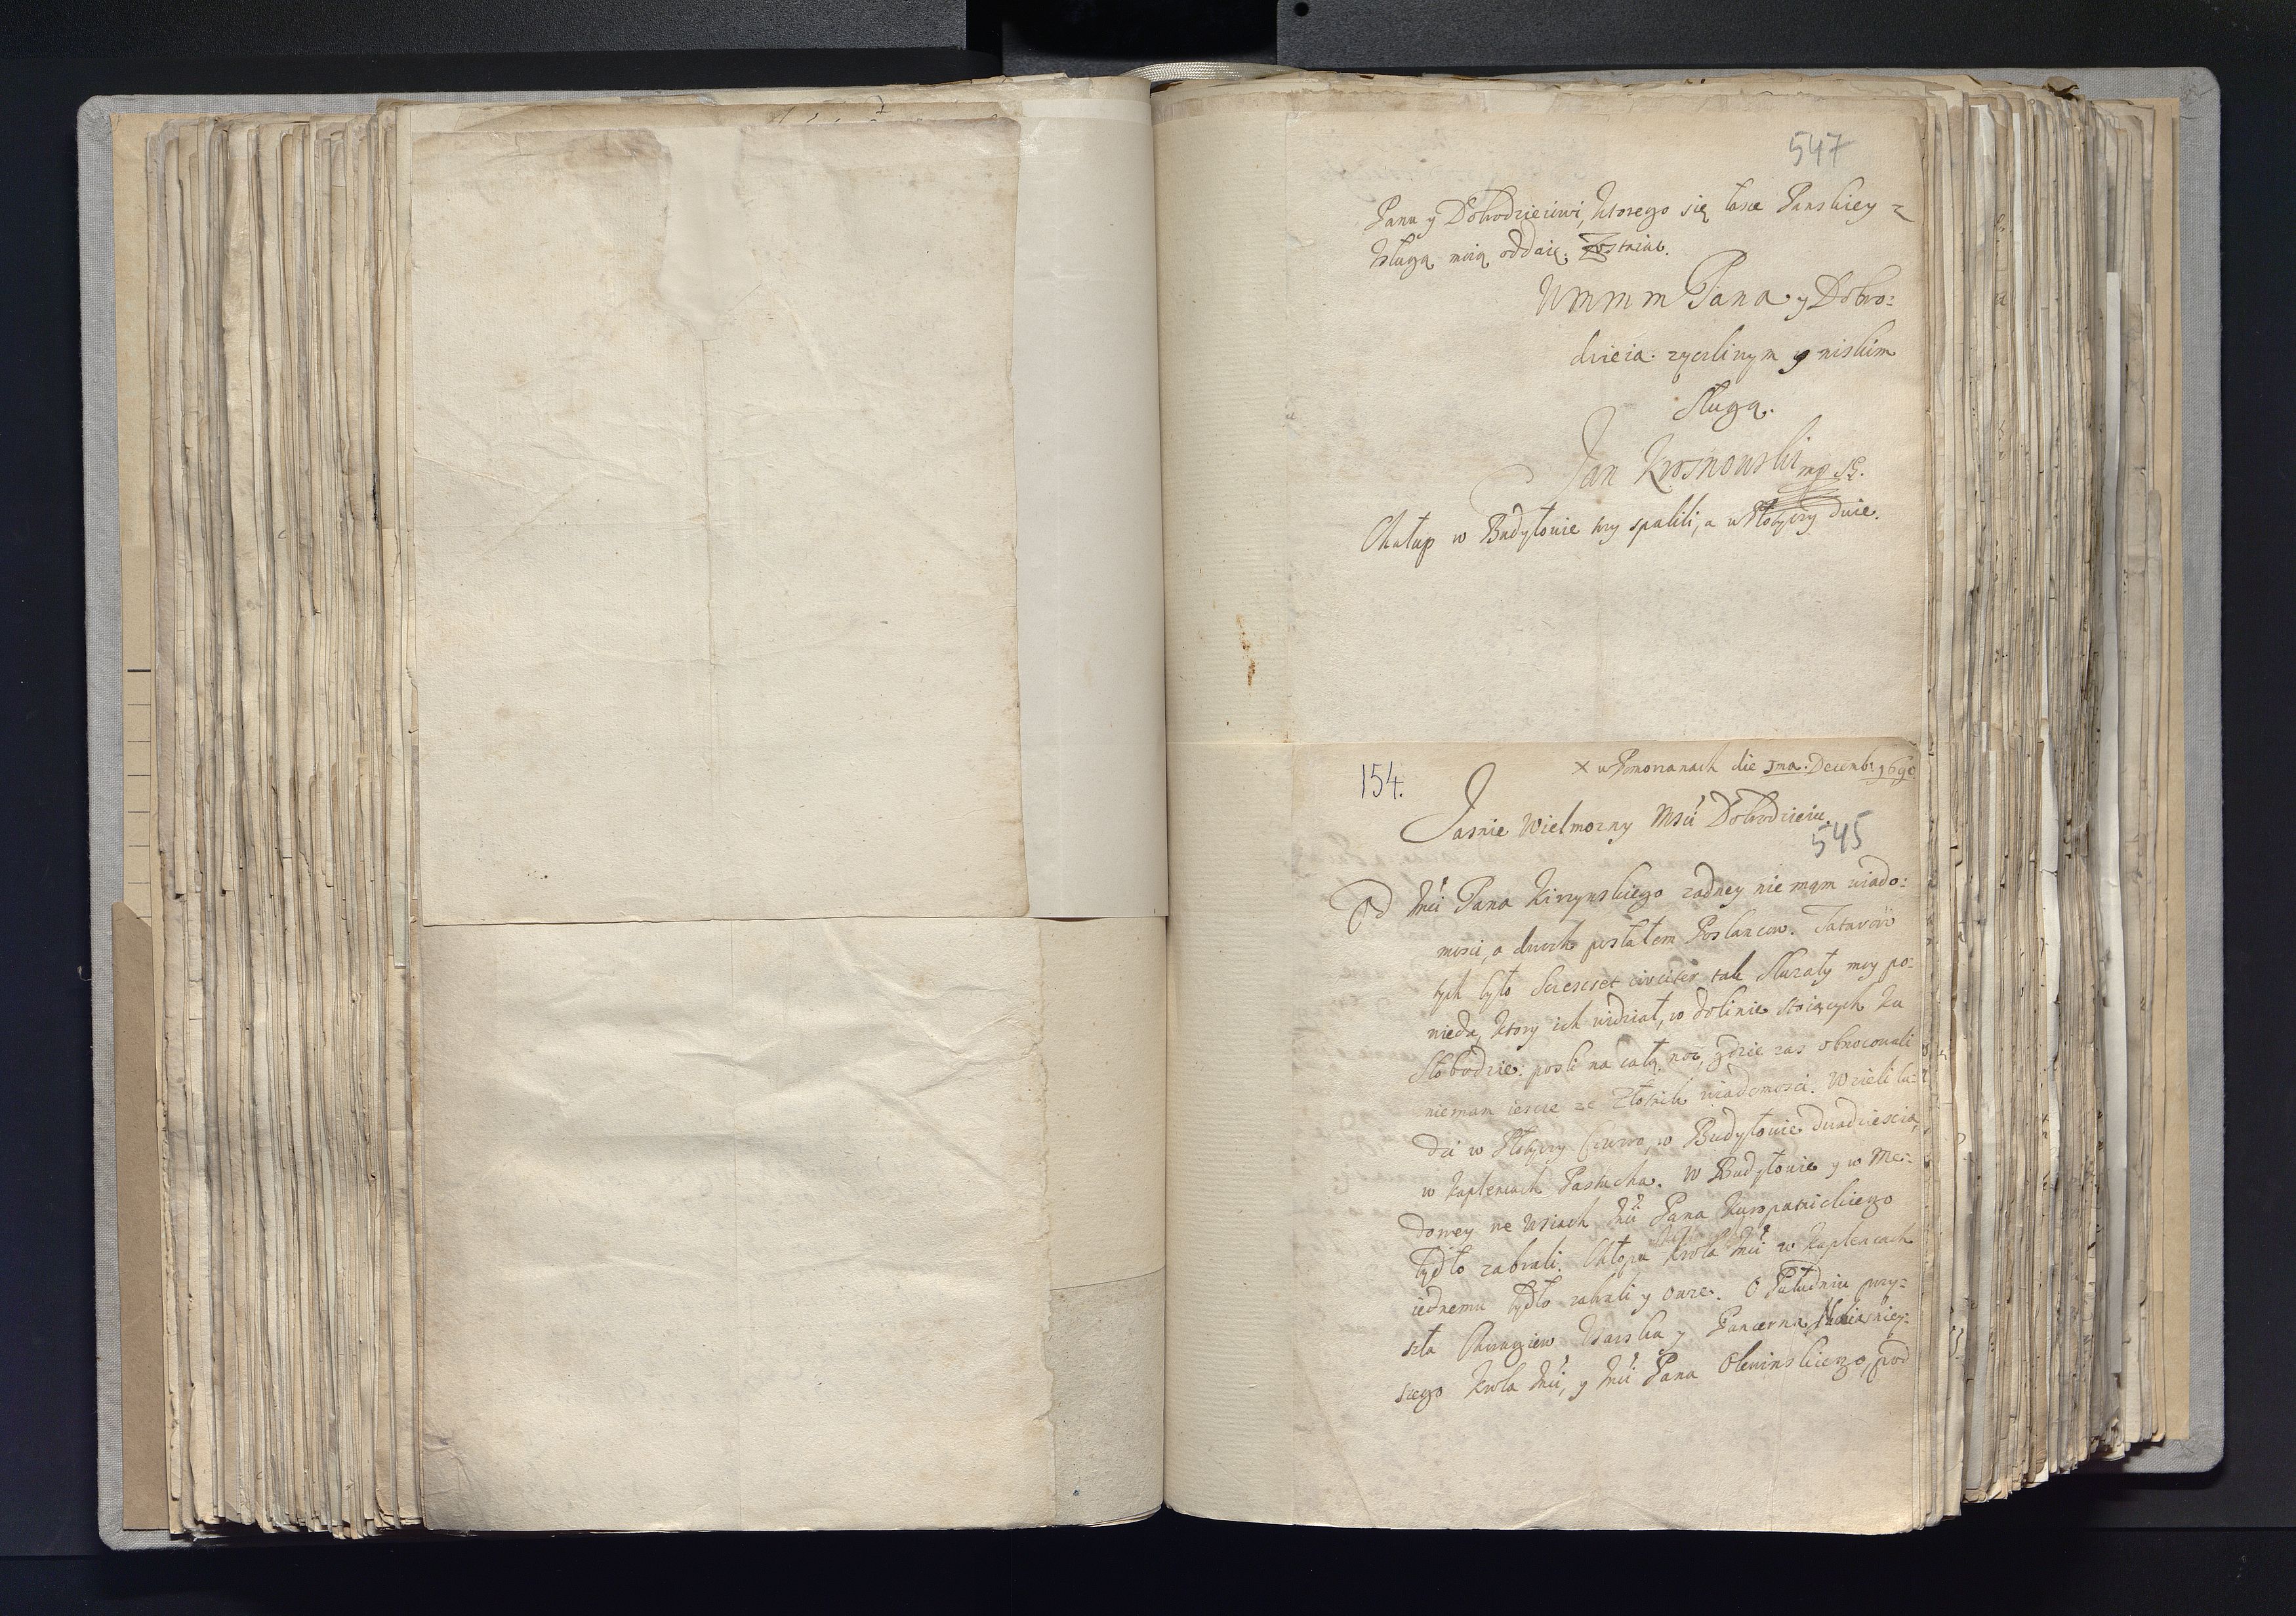 547
Panu y Dobrodzieiowi, ktorego się łasce Panskiey z
usługą moią oddaię. Zostaiąc
Wmm m Pana y Dobro:
dzieia zyczliwym y niskim
sługą.
Jan Krosnowski mp
Chałup w Budyłowie trzy spalili, a w Płotyczy dwie.
154.
x w Pomorzanach die 5ta Decemb: 1690
Jasnie Wielmozny Mśći Dobrodzieiu.
545
Od Jmći Pana Kirzynskiego zadney nie mam wiado:
mosci, a dwoch posłałem Poslancow. Tatarow
tych było szescset circiter tak Sluzały moy po:
wieda, ktory ich widział, w dolinie stoiących ku
Słobodzie: posli na całą noc, gdzie zas obrocowali
nie mam ieszcze ze Złotnik wiadomosci. Wzieli lu:
dzi w Płotyczy czworo, w Budyłowie dwadziescia,
w Kaplincach Pastucha. W Budyłowie y w Me:
dowey we wsiach Jmći Pana Kuropatnickiego
bydło zabrali. Chłopu Krola Jmći w Kaplincach
iednemu bydło zabrali y owce. O Południu przy:
szła Chorągiew Usarska y Pancerna Naiasniey:
szego Krola Jmći, y Jmći Pana Olewinskiego, pod